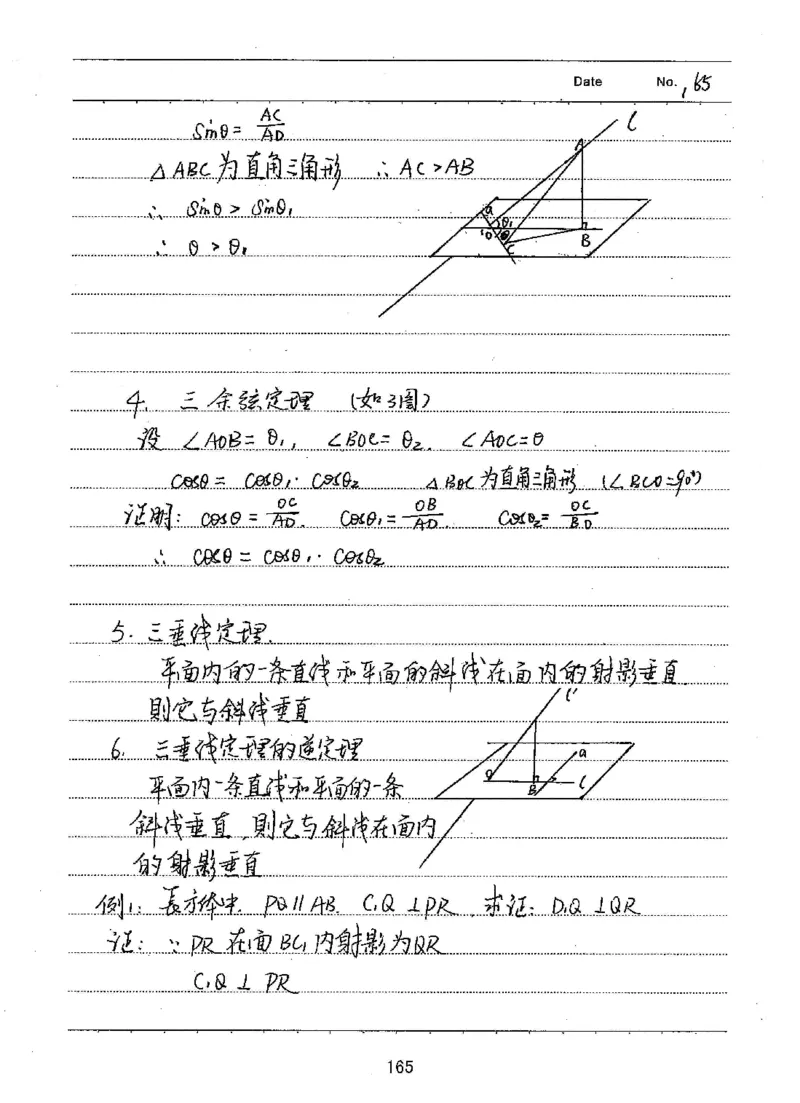 Date No. 165
Sinθ = AC/AD
△ABC为直角三角形 ∴ AC>AB
∴ Sinθ > Sinθ₁
∴ θ > θ₁
l
A
a
θ₁
O
θ
B
C
4. 三余弦定理 (如3图)
设 ∠AOB=θ₁, ∠BOC=θ₂. ∠AOC=θ
cosθ = cosθ₁·cosθ₂ △BOC为直角三角形 (∠BCO=90°)
证明: cosθ = OC/AO. cosθ₁ = OB/AO. cosθ₂ = OC/BO
∴ cosθ = cosθ₁·cosθ₂
5. 三垂线定理.
平面内的一条直线和平面的斜线在面内的射影垂直
則它与斜线垂直
l'
6. 三垂线定理的逆定理
a
平面内一条直线和平面的一条
O
B
l
斜线垂直,則它与斜线在面内
的射影垂直
例1: 長方体中. PQ∥AB. C₁Q⊥PR. 求证: D₁Q⊥QR
证: ∵ PR在面BC₁内射影为QR
C₁Q ⊥ PR
165